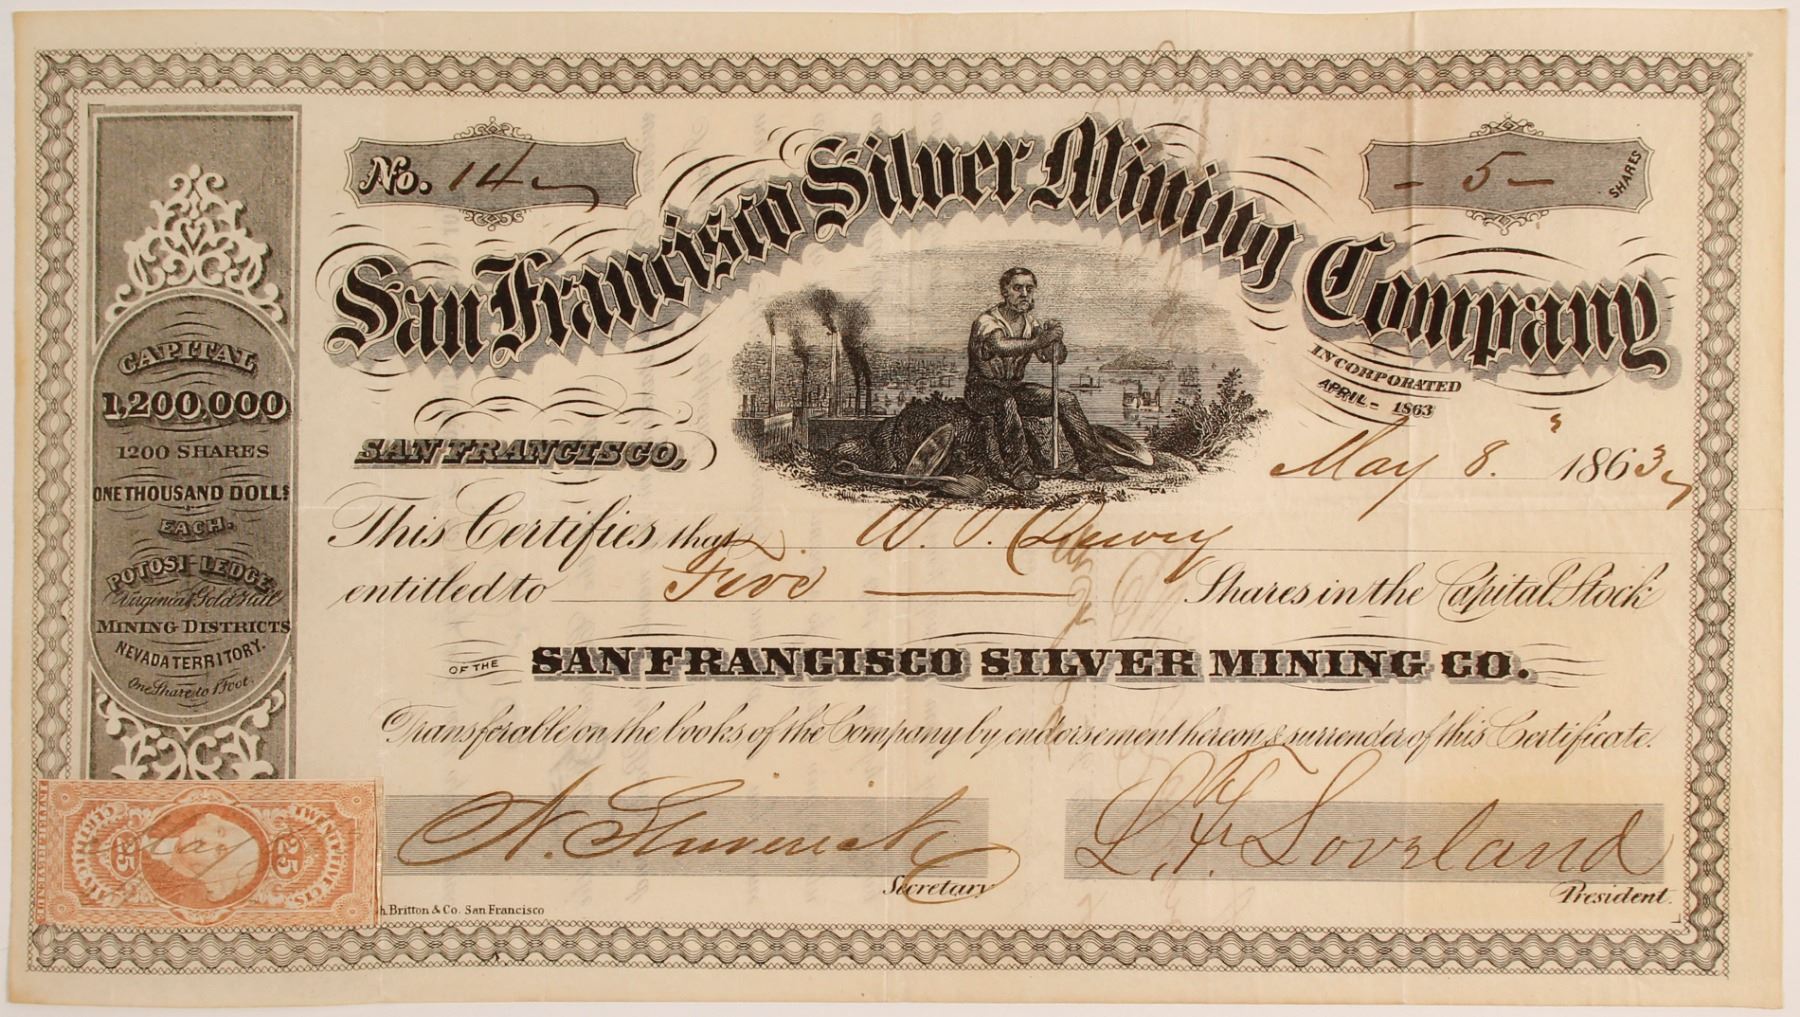 No. 14
- 5 - SHARES
San Francisco Silver Mining Company
INCORPORATED
APRIL - 1863
CAPITAL
1,200,000
1200 SHARES
ONE THOUSAND DOLLS
EACH.
POTOSI-LEDGE
Virginia & Gold Hill
MINING DISTRICTS
NEVADA TERRITORY.
One Share to 1 Foot.
SAN FRANCISCO, May 8. 1863
This Certifies that W. P. Dewey
entitled to Five Shares in the Capital Stock
OF THE SAN FRANCISCO SILVER MINING CO.
Transferable on the books of the Company by endorsement hereon & surrender of this Certificate.
L. F. Loveland
Secretary
President.
TWENTY FIVE CTS
25
25
CERTIFICATE
May
Britton & Co. San Francisco